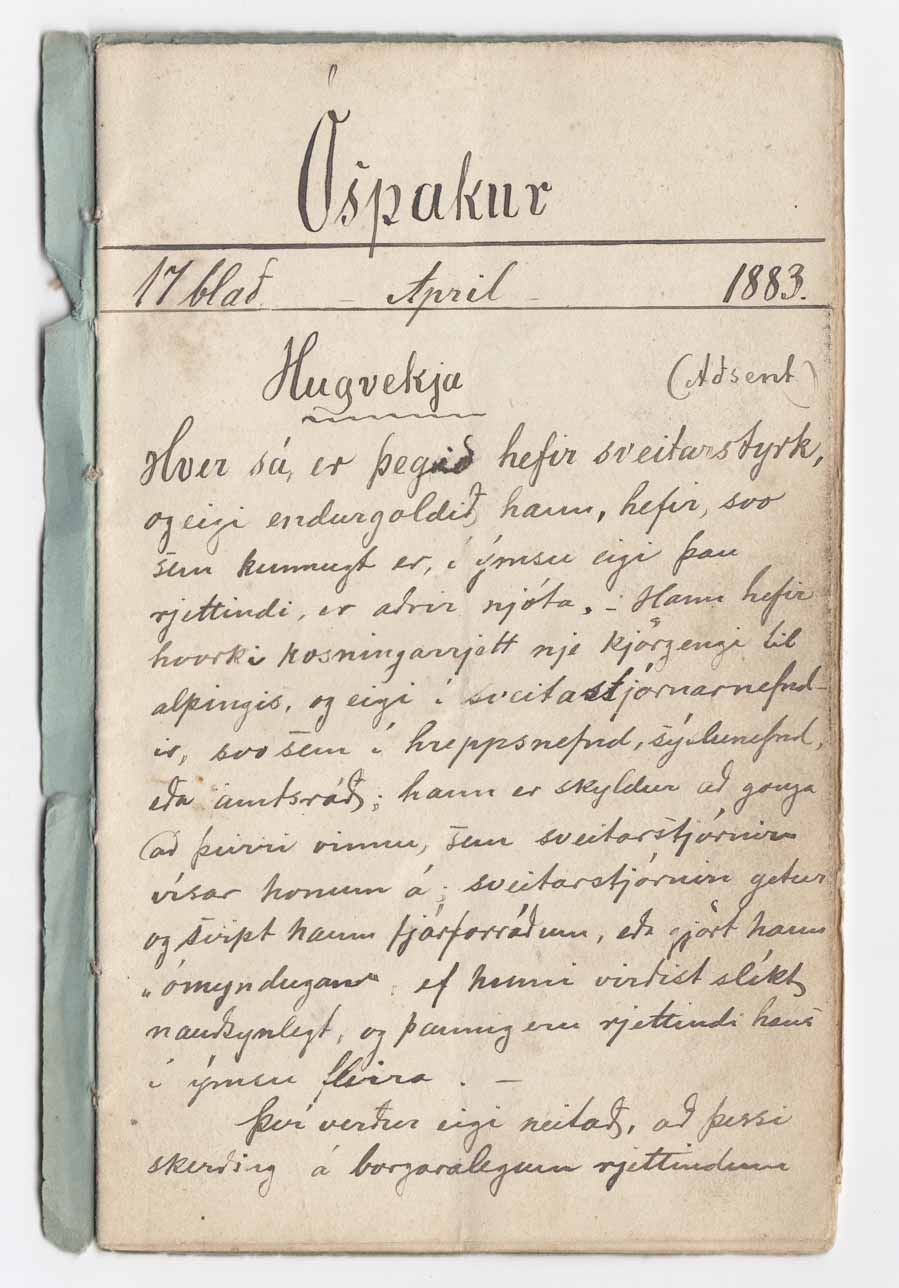 Óspakur
17 blað. - April - 1883.
Hugvekja (Aðsent)
Hver sá, er þegið hefir sveitarstyrk,
og eigi endurgoldið hann, hefir, svo
sem kunnugt er, í ýmsu eigi þau
rjettindi, er aðrir njóta. - Hann hefir
hvorki kosningarrjett nje kjörgengi til
alþingis, og eigi í sveitastjórnarnefnd-
ir, svo sem í hreppsnefnd, sýslunefnd,
eða amtsráð; hann er skyldur að ganga
að þeirri vinnu, sem sveitarstjórnin
vísar honum á; sveitarstjórnin getur
og svipt hann fjárforráðum, eða gjört hann
„ómyndugann“, ef henni virðist slíkt
nauðsynlegt, og þannig eru rjettindi hans
í ýmsu fleira. -
Því verður eigi neitað, að þessi
skerðing á borgaralegum rjettindum